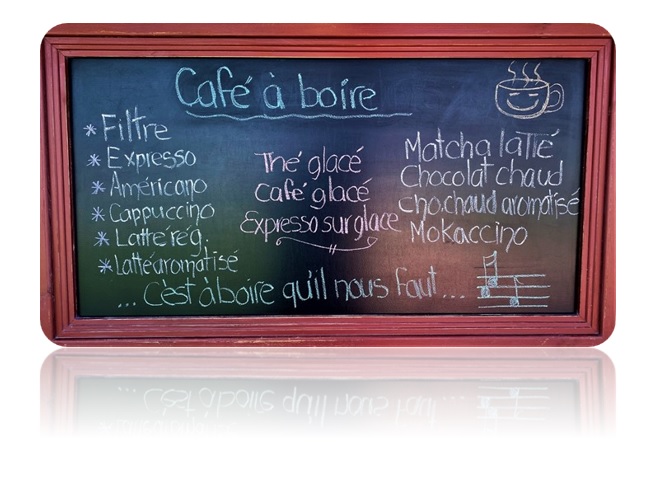 Café à boire
* Filtre
* Expresso
* Américano
* Cappuccino
* Latté rég.
* Latté aromatisé
Thé glacé
Café glacé
Expresso sur glace
Matcha latté
Chocolat chaud
cho.chaud aromatisé
Mokaccino
... c'est à boire qu'il nous faut ...